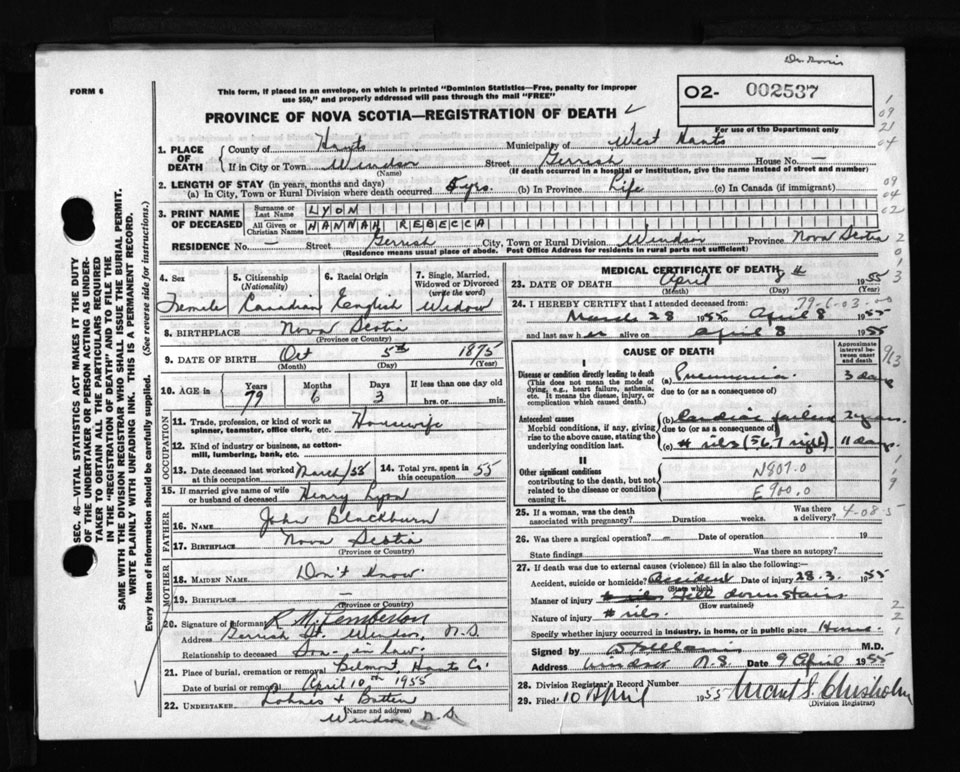 FORM 6
This form, if placed in an envelope, on which is printed "Dominion Statistics—Free, penalty for improper
use $50," and properly addressed will pass through the mail "FREE"
PROVINCE OF NOVA SCOTIA—REGISTRATION OF DEATH
O2- 002537
For use of the Department only
1. PLACE OF DEATH County of Hants Municipality of West Hants
If in City or Town Windsor Street Gerrish House No. —
(Name) (If death occurred in a hospital or institution, give the name instead of street and number)
2. LENGTH OF STAY (in years, months and days)
(a) In City, Town or Rural Division where death occurred 5 yrs. (b) In Province Life (c) In Canada (if immigrant)
3. PRINT NAME OF DECEASED Surname or Last Name LYON
All Given or Christian Names HANNAH REBECCA
RESIDENCE No. — Street Gerrish City, Town or Rural Division Windsor Province Nova Scotia
(Residence means usual place of abode. Post Office Address for residents in rural parts not sufficient)
4. Sex Female
5. Citizenship (Nationality) Canadian
6. Racial Origin English
7. Single, Married, Widowed or Divorced (write the word) Widow
8. BIRTHPLACE Nova Scotia
(Province or Country)
9. DATE OF BIRTH Oct 5th 1875
(Month) (Day) (Year)
10. AGE in Years 79 Months 6 Days 3 If less than one day old hrs. or min.
OCCUPATION
11. Trade, profession, or kind of work as spinner, teamster, office clerk, etc. Housewife
12. Kind of industry or business, as cotton-mill, lumbering, bank, etc.
13. Date deceased last worked at this occupation
14. Total yrs. spent in this occupation 55
15. If married give name of wife or husband of deceased Henry Lyon
FATHER
16. NAME John Blackburn
17. BIRTHPLACE Nova Scotia
(Province or Country)
MOTHER
18. MAIDEN NAME Don't Know.
19. BIRTHPLACE
(Province or Country)
20. Signature of informant
Address Gerrish St. Windsor, N.S.
Relationship to deceased Son-in law.
21. Place of burial, cremation or removal Belmont Hants Co.
Date of burial or removal April 10th 1955
22. UNDERTAKER
(Name and address)
Windsor, N.S.
MEDICAL CERTIFICATE OF DEATH
23. DATE OF DEATH April 1955
(Month) (Day)
24. I HEREBY CERTIFY that I attended deceased from:
79-6-03-00
March 28 1955 April 8 1955
and last saw her alive on April 8 1955
CAUSE OF DEATH
Approximate interval between onset and death
I
Disease or condition directly leading to death (a) Pneumonia. 3 days
(This does not mean the mode of dying, e.g., heart failure, asthenia, etc. It means the disease, injury, or complication which caused death.)
due to (or as a consequence of)
Antecedent causes (b) Cardiac failure 2 years
Morbid conditions, if any, giving rise to the above cause, stating the underlying condition last.
due to (or as a consequence of)
(c) # ribs (5 6 7 right) 11 days
II
Other significant conditions contributing to the death, but not related to the disease or condition causing it.
N807.0
E900.0
25. If a woman, was the death associated with pregnancy? Duration weeks. Was there a delivery?
26. Was there a surgical operation? — Date of operation 19
State findings Was there an autopsy?
27. If death was due to external causes (violence) fill in also the following:—
Accident, suicide or homicide? Accident Date of injury 28.3. 1955
(State which)
Manner of injury # ribs fell downstairs
(How sustained)
Nature of injury # ribs.
Specify whether injury occurred in industry, in home, or in public place Home.
Signed by M.D.
Address Windsor N.S. Date 9 April 1955
28. Division Registrar's Record Number
29. Filed: 10 April 1955 Chisholm
(Division Registrar)
SEC. 46—VITAL STATISTICS ACT MAKES IT THE DUTY
OF THE UNDERTAKER OR PERSON ACTING AS UNDER-
TAKER TO OBTAIN ALL THE PARTICULARS REQUIRED
IN THE "REGISTRATION OF DEATH" AND TO FILE THE
SAME WITH THE DIVISION REGISTRAR WHO SHALL ISSUE THE BURIAL PERMIT.
WRITE PLAINLY WITH UNFADING INK. THIS IS A PERMANENT RECORD.
Every item of information should be carefully supplied. (See reverse side for instructions.)